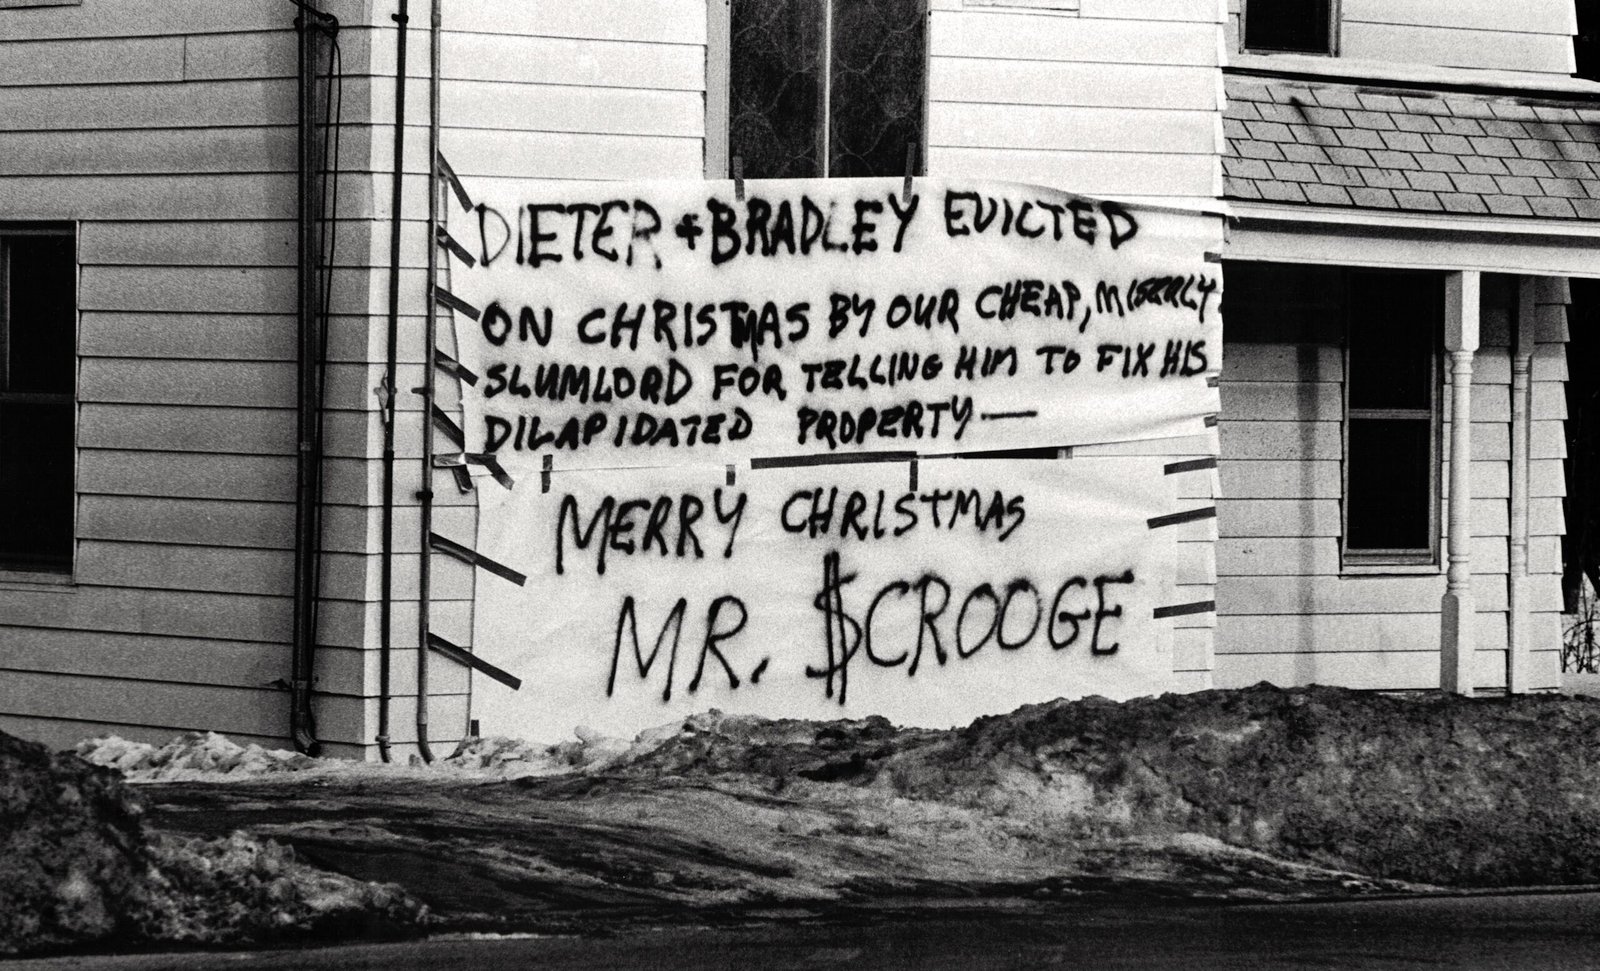 DIETER & BRADLEY EVICTED
ON CHRISTMAS BY OUR CHEAP, MISERLY
SLUMLORD FOR TELLING HIM TO FIX HIS
DILAPIDATED PROPERTY—
MERRY CHRISTMAS
MR. $CROOGE